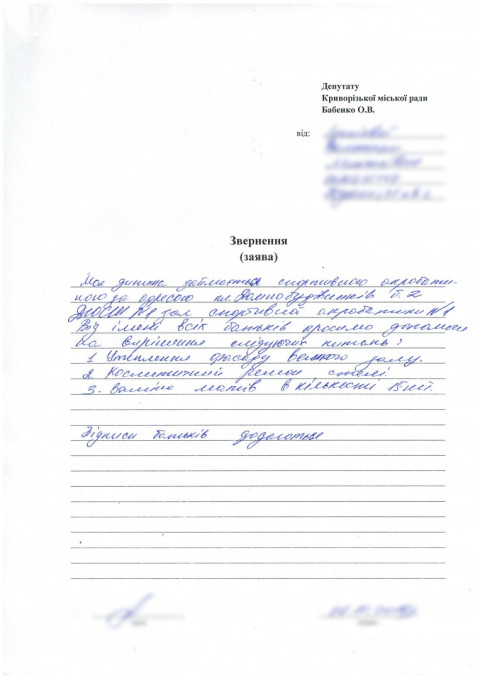 Депутату
Криворізької міської ради
Бабенко О.В.
від:
Звернення
(заява)
Моя дитина займається спортивною акробати-
кою за адресою пл. Домнобудівників б. 2
ДЮСШ №1 зал спортивної акробатики №1
Від імені всіх батьків просимо допомоги
на вирішення слідуючих питань:
1 Утеплення фасаду великого залу.
2. Косметичний ремон стелі
3. заміна матів в кількості 15 шт.
Підписи батьків додаються